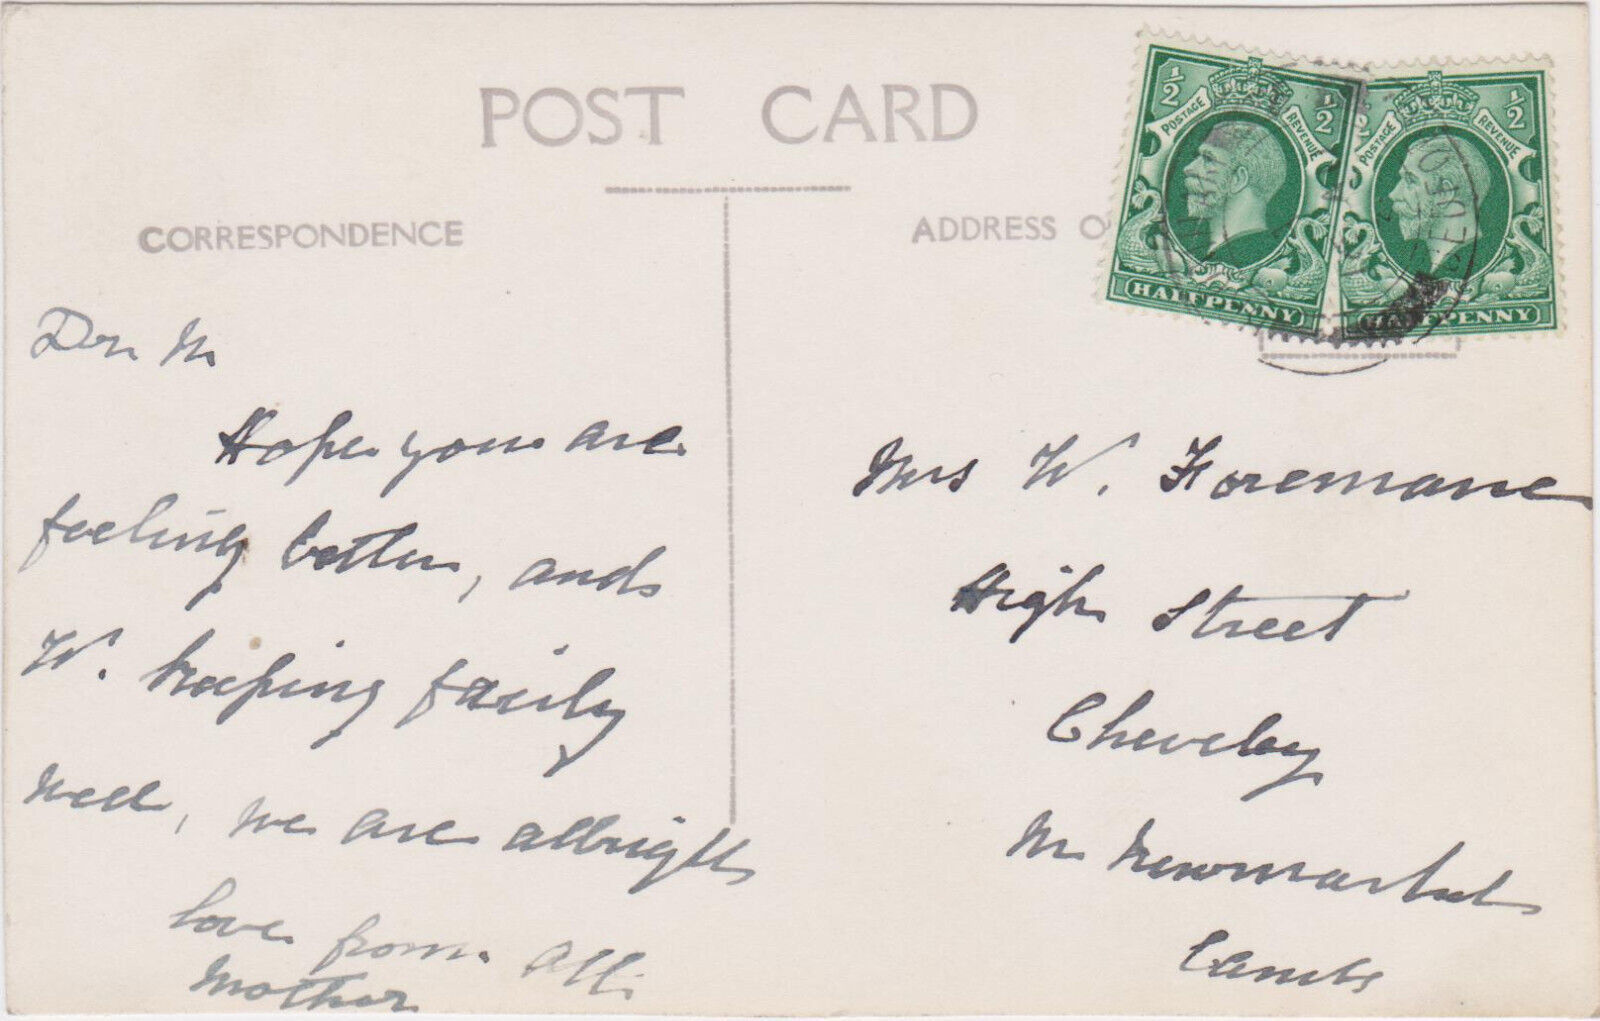 POST CARD
CORRESPONDENCE
Dear M
Hope you are
feeling better, and
W. keeping fairly
well, we are allright
love from all
Mother
ADDRESS O
1/2 1/2
POSTAGE REVENUE
HALFPENNY
1/2 1/2
POSTAGE REVENUE
HALFPENNY
Mrs W. Foreman
High Street
Cheveley
Nr Newmarket
Cambs